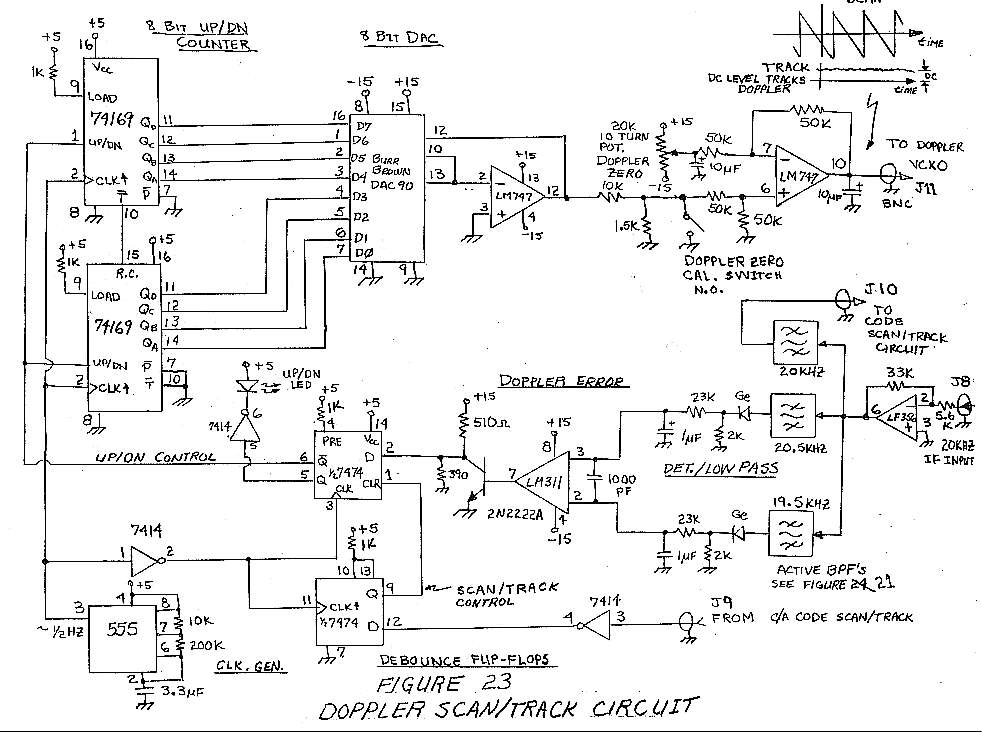 SCAN
TIME
TRACK
DC LEVEL TRACKS
DOPPLER
DC
TIME
8 BIT UP/DN
COUNTER
8 BIT DAC
+5
+5
16
1K
Vcc
9
LOAD
74169
1
UP/DN
2
CLK↑
8
10
QD 11
QC 12
QB 13
QA 14
P̅ 7
+5
1K
9
+5
15
16
R.C.
LOAD
74169
UP/DN
2
CLK↑
8
QD 11
QC 12
QB 13
QA 14
P̅ 7
T̅ 10
-15
+15
8
15
16 D7
1 D6
2 D5
3 D4
4 D3
5 D2
6 D1
7 D0
BURR
BROWN
DAC90
14
9
12
10
13
+15
2
13
LM747
12
3
4
-15
20K
10 TURN
POT.
DOPPLER
ZERO
+15
-15
10K
1.5K
50K
10µF
50K
50K
50K
7
6
LM747
10
10µF
TO DOPPLER
VCXO
J11
BNC
DOPPLER ZERO
CAL. SWITCH
N.O.
J10
TO
CODE
SCAN/TRACK
CIRCUIT
20KHZ
33K
J8
6
LF356
2
3
5.6
K
20KHZ
IF INPUT
20.5KHZ
Ge
23K
2K
1µF
DET./LOW PASS
19.5KHZ
Ge
23K
2K
1µF
ACTIVE BPF'S
SEE FIGURE 24, 21
DOPPLER ERROR
+15
510Ω
+15
8
3
LM311
7
2
4
-15
1000
PF
390
2N2222A
+5
UP/DN
LED
6
5
+5
1K
4
+5
14
PRE
Vcc
D
2
6
Q̅
½7474
5
Q
CLR
1
CLK
3
UP/DN CONTROL
7414
1
2
+5
1K
10
13
Q
9
11
CLK↑
½7474
D
12
7
SCAN/TRACK
CONTROL
7414
4
3
J9
FROM C/A CODE SCAN/TRACK
+5
4
3
~ ½HZ
555
8
7
6
2
10K
200K
3.3µF
CLK. GEN.
DEBOUNCE FLIP-FLOPS
FIGURE 23
DOPPLER SCAN/TRACK CIRCUIT